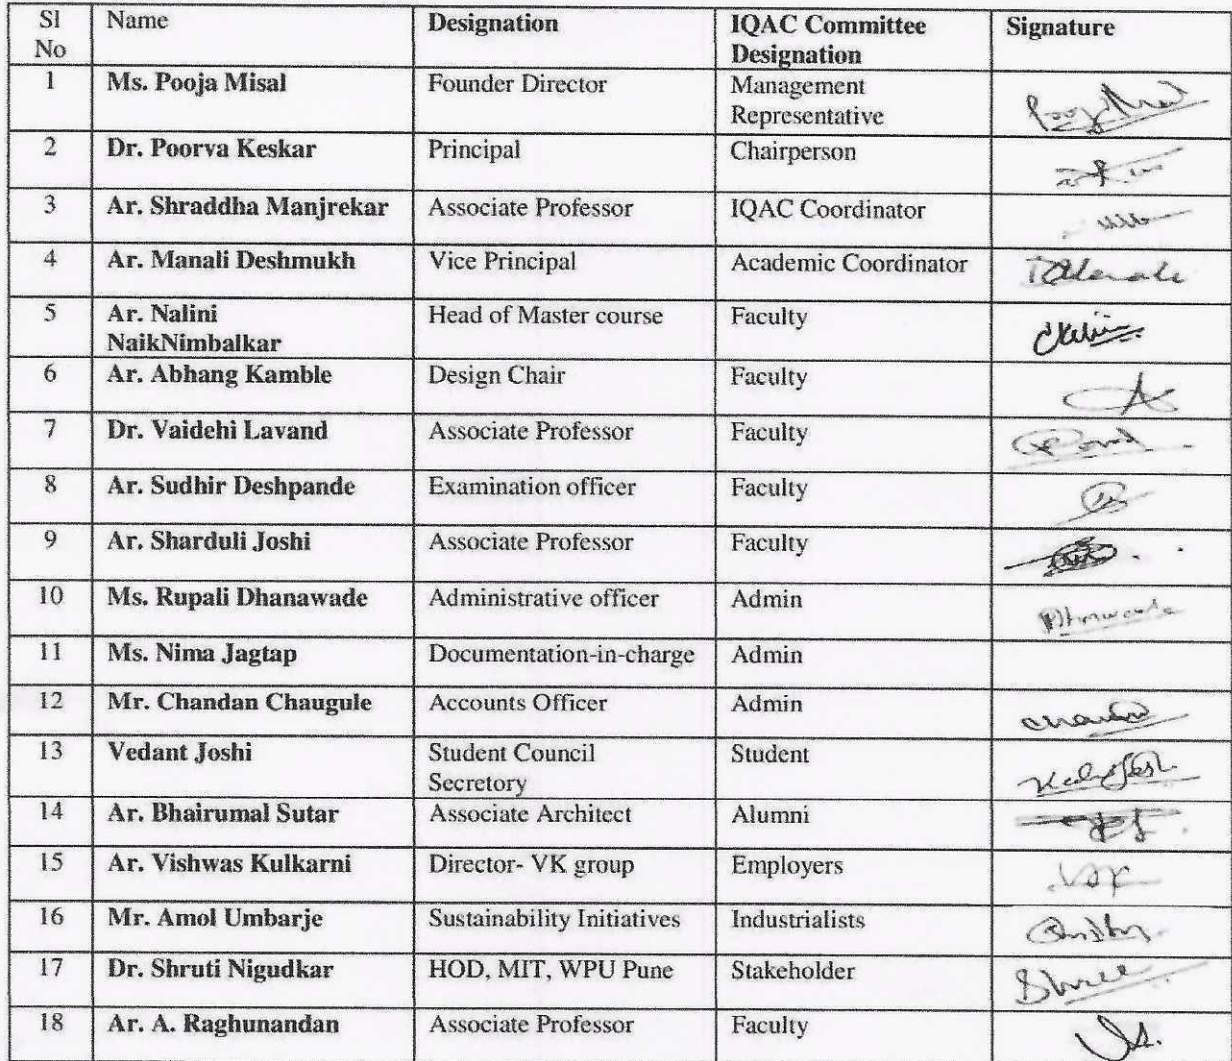 Sl No Name Designation IQAC Committee Designation Signature
1 Ms. Pooja Misal Founder Director Management Representative
2 Dr. Poorva Keskar Principal Chairperson
3 Ar. Shraddha Manjrekar Associate Professor IQAC Coordinator
4 Ar. Manali Deshmukh Vice Principal Academic Coordinator
5 Ar. Nalini NaikNimbalkar Head of Master course Faculty
6 Ar. Abhang Kamble Design Chair Faculty
7 Dr. Vaidehi Lavand Associate Professor Faculty
8 Ar. Sudhir Deshpande Examination officer Faculty
9 Ar. Sharduli Joshi Associate Professor Faculty
10 Ms. Rupali Dhanawade Administrative officer Admin
11 Ms. Nima Jagtap Documentation-in-charge Admin
12 Mr. Chandan Chaugule Accounts Officer Admin
13 Vedant Joshi Student Council Secretory Student
14 Ar. Bhairumal Sutar Associate Architect Alumni
15 Ar. Vishwas Kulkarni Director- VK group Employers
16 Mr. Amol Umbarje Sustainability Initiatives Industrialists
17 Dr. Shruti Nigudkar HOD, MIT, WPU Pune Stakeholder
18 Ar. A. Raghunandan Associate Professor Faculty